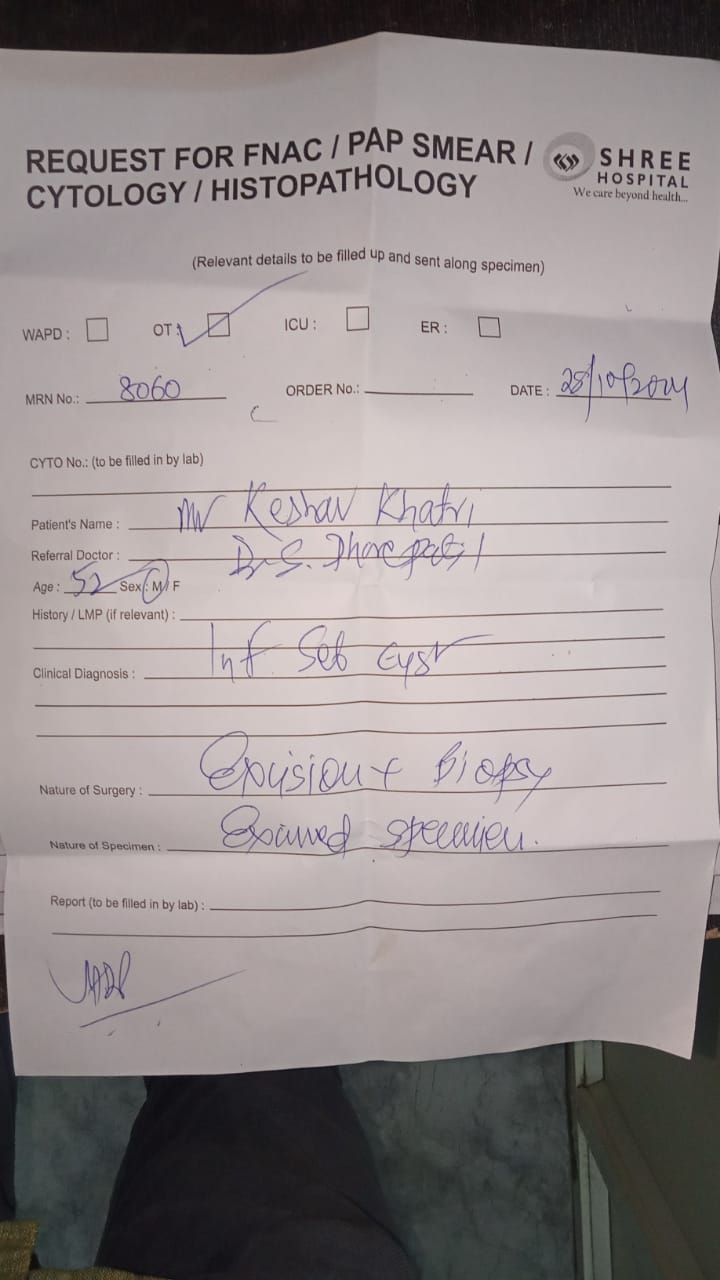 REQUEST FOR FNAC / PAP SMEAR /
CYTOLOGY / HISTOPATHOLOGY
SHREE
HOSPITAL
We care beyond health...
(Relevant details to be filled up and sent along specimen)
WAPD : OT : ICU : ER :
MRN No.: 8060 ORDER No.: DATE : 25/10/2024
CYTO No.: (to be filled in by lab)
Patient's Name : Mr Keshav Khatri
Referral Doctor : Dr S.
Age : 52 Sex : M / F
History / LMP (if relevant) :
Clinical Diagnosis : Inf Seb cyst
Nature of Surgery : Excision + Biopsy
Nature of Specimen : specimen.
Report (to be filled in by lab) :